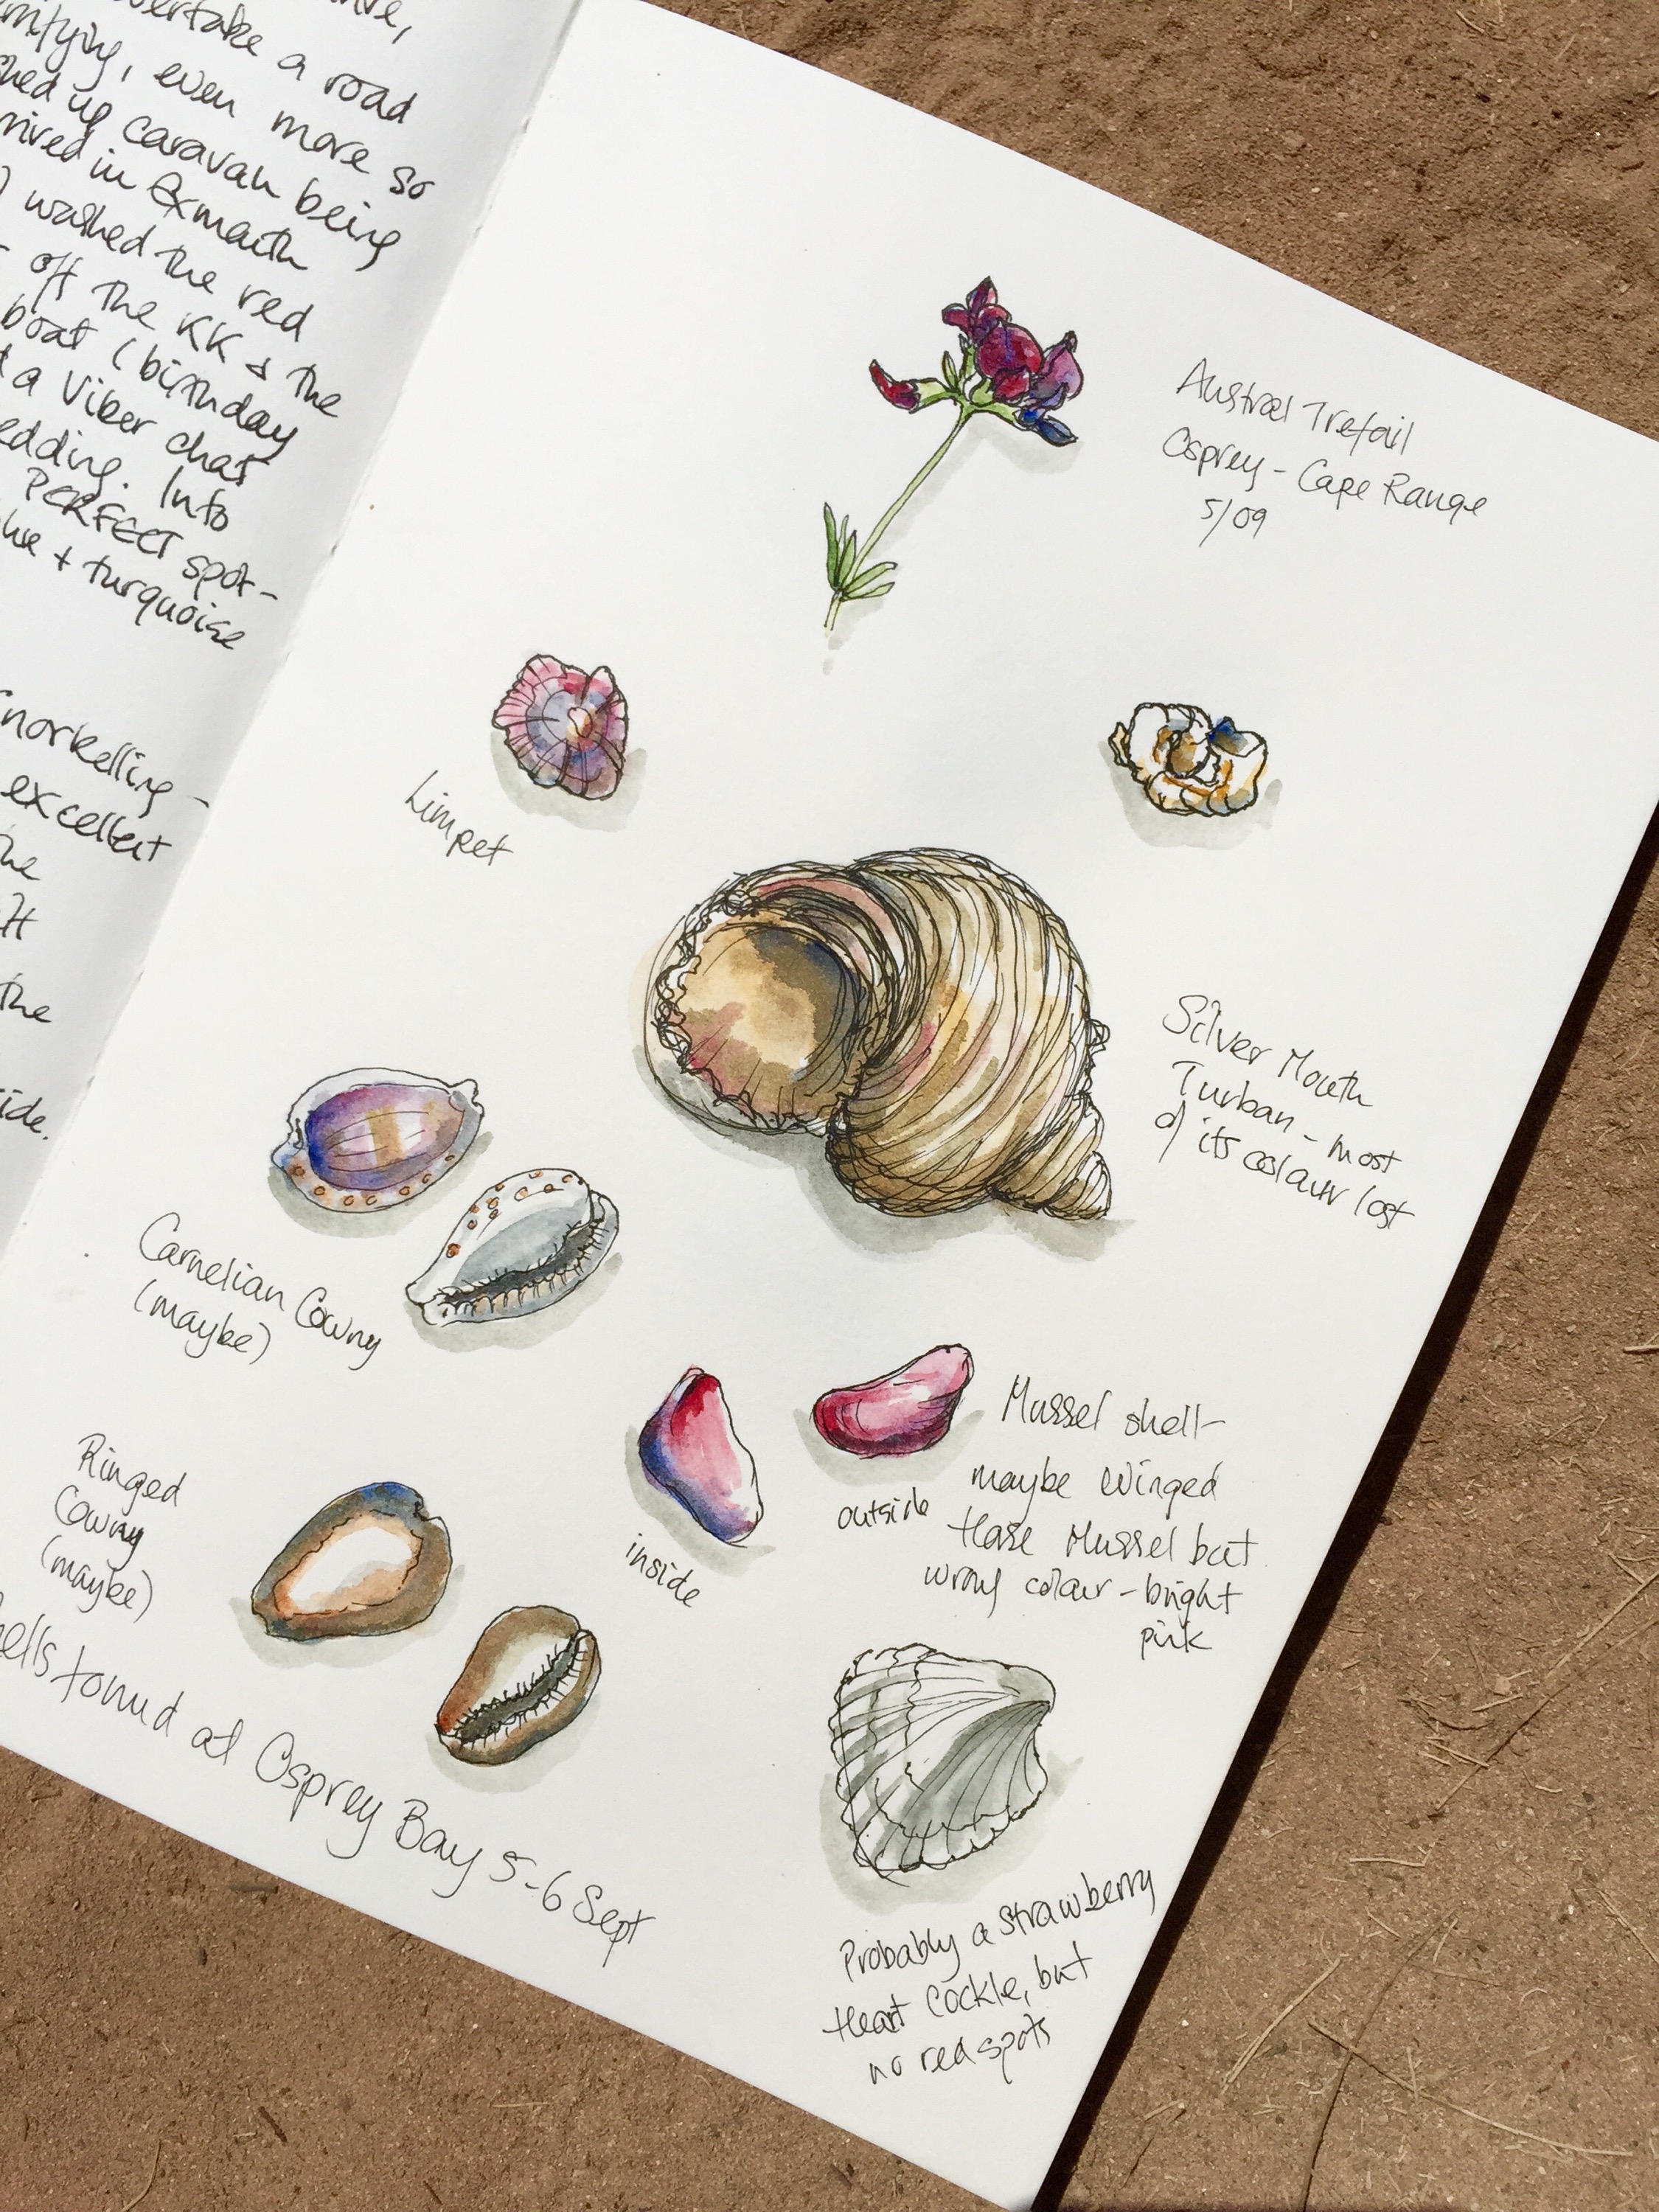 overtake a road
even more so
up caravan being
in Exmouth
washed the red
off the KK & the
boat (birthday
a Viber chat
Into
PERFECT spot-
+ turquoise
excellent
the
Austral Trefoil
Osprey - Cape Range
5/09
Limpet
Silver Mouth
Turban - most
of its colour lost
Carnelian Cowry
(maybe)
Mussel shell-
maybe Winged
Hare Mussel but
wrong colour - bright
pink
outside
inside
Ringed
Cowry
(maybe)
found at Osprey Bay 5-6 Sept
Probably a Strawberry
Heart Cockle, but
no red spots